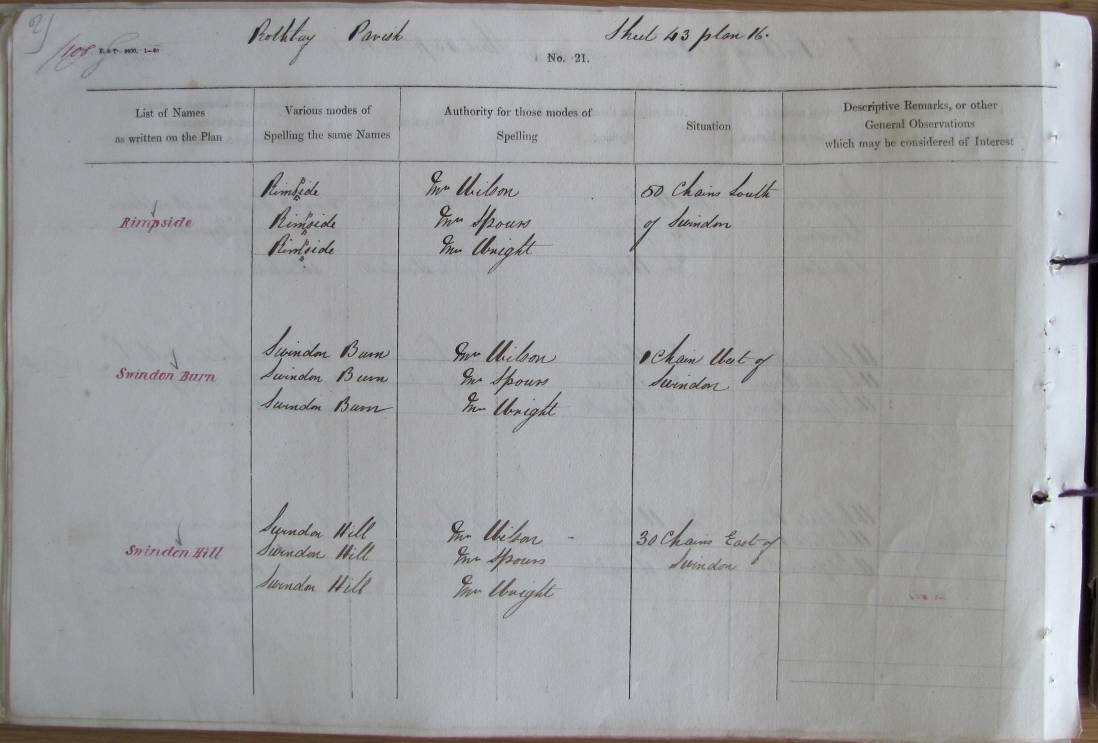 Rothbury Parish Sheet 43 plan 16.
No. 21.
List of Names as written on the Plan
Various modes of Spelling the same Names
Authority for those modes of Spelling
Situation
Descriptive Remarks, or other General Observations which may be considered of Interest
Rimpside
Rimpside Mr Wilson 50 Chains South
Rimpside Mr Spours of Swindon
Rimpside Mr Wright
Swindon Burn
Swindon Burn Mr Wilson 1 Chain West of
Swindon Burn Mr Spours Swindon
Swindon Burn Mr Wright
Swindon Hill
Swindon Hill Mr Wilson 30 Chains East of
Swindon Hill Mr Spours Swindon
Swindon Hill Mr Wright